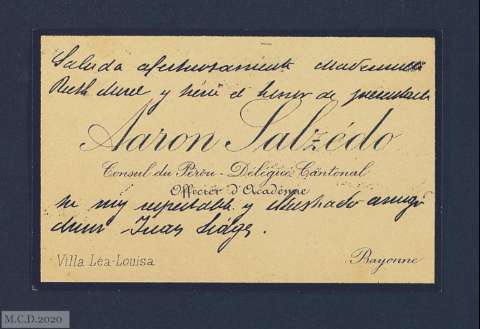 Saluda afectuosamente
Ruth y el honor de
Aaron Salzédo
Consul du Pérou - Délégué Cantonal
Officier d'Académie
su muy respetable y ilustrado amigo
Juan
Villa Léa-Louisa
Bayonne
M.C.D.2020